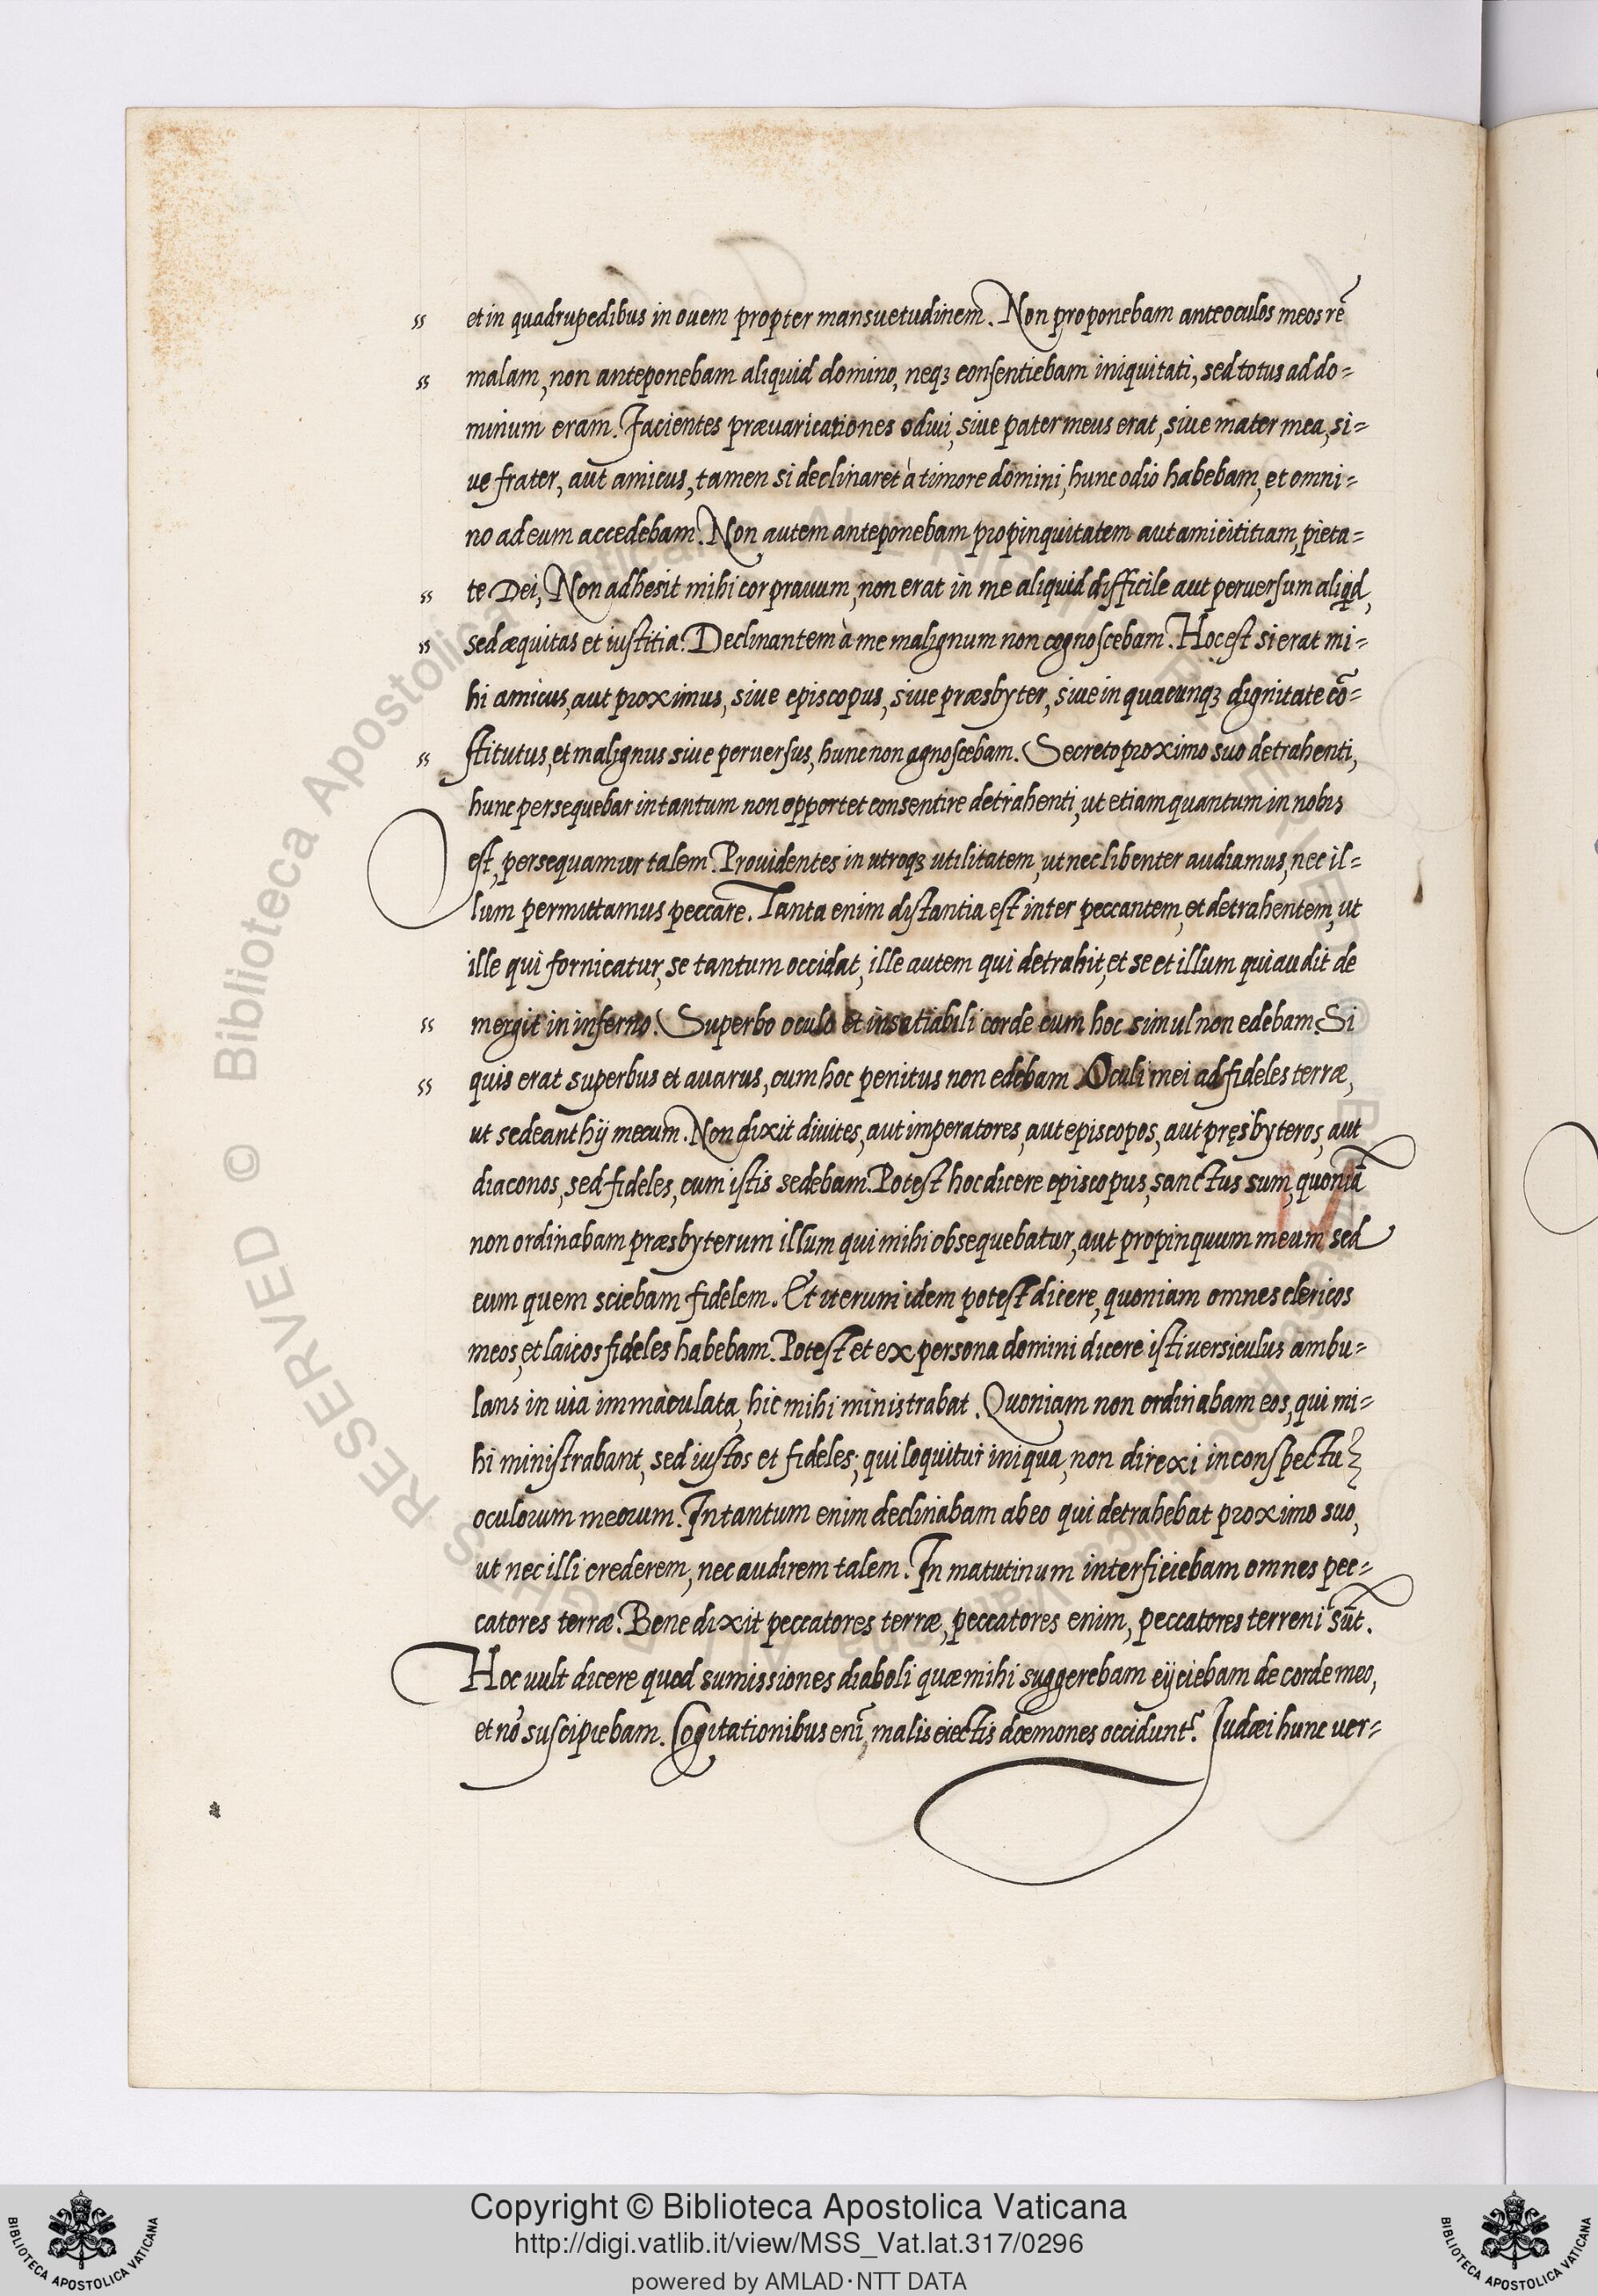 et in quadrupedibus in ouem propter mansuetudinem. Non proponebam ante oculos meos rẽ
malam, non anteponebam aliquid domino, neqȝ consentiebam iniquitati, sed totus ad do=
minum eram. Facientes præuaricationes odiui, siue pater meus erat, siue mater mea, si=
ue frater, aut amicus, tamen si declinaret à timore domini, hunc odio habebam, et omni=
no ad eum accedebam. Non autem anteponebam propinquitatem aut amicititiam, pieta=
te Dei, Non adhesit mihi cor prauum, non erat in me aliquid difficile aut peruersum aliqd,
sed æquitas et iustitia. Declinantem à me malignum non cognoscebam. Hoc est si erat mi=
hi amicus, aut proximus, siue episcopus, siue præsbyter, siue in quacunqȝ dignitate cõ=
stitutus, et malignus siue peruersus, hunc non agnoscebam. Secreto proximo suo detrahenti,
hunc persequebar in tantum non opportet consentire detrahenti, ut etiam quantum in nobis
est, persequamur talem. Prouidentes in utroqȝ utilitatem, ut nec libenter audiamus, nec il=
lum permittamus peccare. Tanta enim distantia est inter peccantem, et detrahentem, ut
ille qui fornicatur, se tantum occidat, ille autem qui detrahit, et se et illum qui audit de
mergit in inferno. Superbo oculo et insatiabili corde cum hoc simul non edebam. Si
quis erat superbus et auarus, cum hoc penitus non edebam. Oculi mei ad fideles terræ,
ut sedeant hij mecum. Non dixit diuites, aut imperatores, aut episcopos, aut pręsbyteros, aut
diaconos, sed fideles, cum istis sedebam. Potest hoc dicere episcopus, sanctus sum, quoniã
non ordinabam præsbyterum illum qui mihi obsequebatur, aut propinquum meum sed
eum quem sciebam fidelem. Et iterum idem potest dicere, quoniam omnes clericos
meos, et laicos fideles habebam. Potest et ex persona domini dicere isti uersiculus ambu=
lans in uia immaculata, hic mihi ministrabat. Quoniam non ordinabam eos, qui mi=
hi ministrabant, sed iustos et fideles; qui loquitur iniqua, non direxi in conspectu
oculorum meorum. In tantum enim declinabam ab eo qui detrahebat proximo suo,
ut nec illi crederem, nec audirem talem. In matutinum interficiebam omnes pec=
catores terræ. Bene dixit peccatores terræ, peccatores enim, peccatores terreni sũt.
Hoc uult dicere quod sumissiones diaboli quæ mihi suggerebam eijciebam de corde meo,
et nõ suscipiebam. Cogitationibus enĩ, malis eiectis dæmones occidunt̃. Iudæi hunc uer=
Copyright © Biblioteca Apostolica Vaticana
http://digi.vatlib.it/view/MSS_Vat.lat.317/0296
powered by AMLAD·NTT DATA